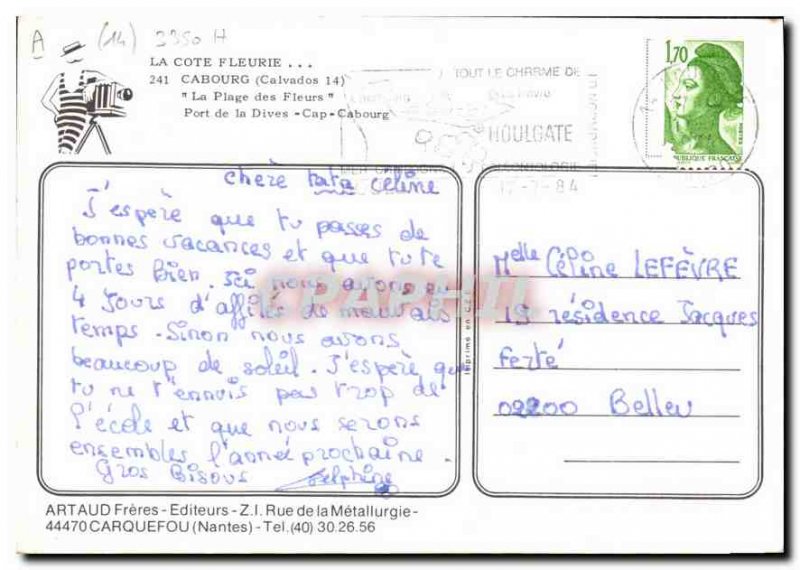 A (14) 3350 H
LA COTE FLEURIE ...
241 CABOURG (Calvados 14)
" La Plage des Fleurs "
Port de la Dives - Cap-Cabourg
TOUT LE CHARME DE
HOULGATE
17-7-84
1,70
chère tata céline
J'espère que tu passes de
bonnes vacances et que tu te
portes bien. Ici nous avons eu
4 jours d'affilés de mauvais
temps. Sinon nous avons
beaucoup de soleil. J'espère que
tu ne t'ennuis pas trop de
l'école et que nous serons
ensembles l'année prochaine.
Gros Bisous Delphine
CPAPHIL
Imprimé en C.E.
Melle Céline LEFÈVRE
19 résidence Jacques
Ferté
02200 Belleu
ARTAUD Frères - Editeurs - Z.I. Rue de la Métallurgie -
44470 CARQUEFOU (Nantes) - Tel. (40) 30.26.56